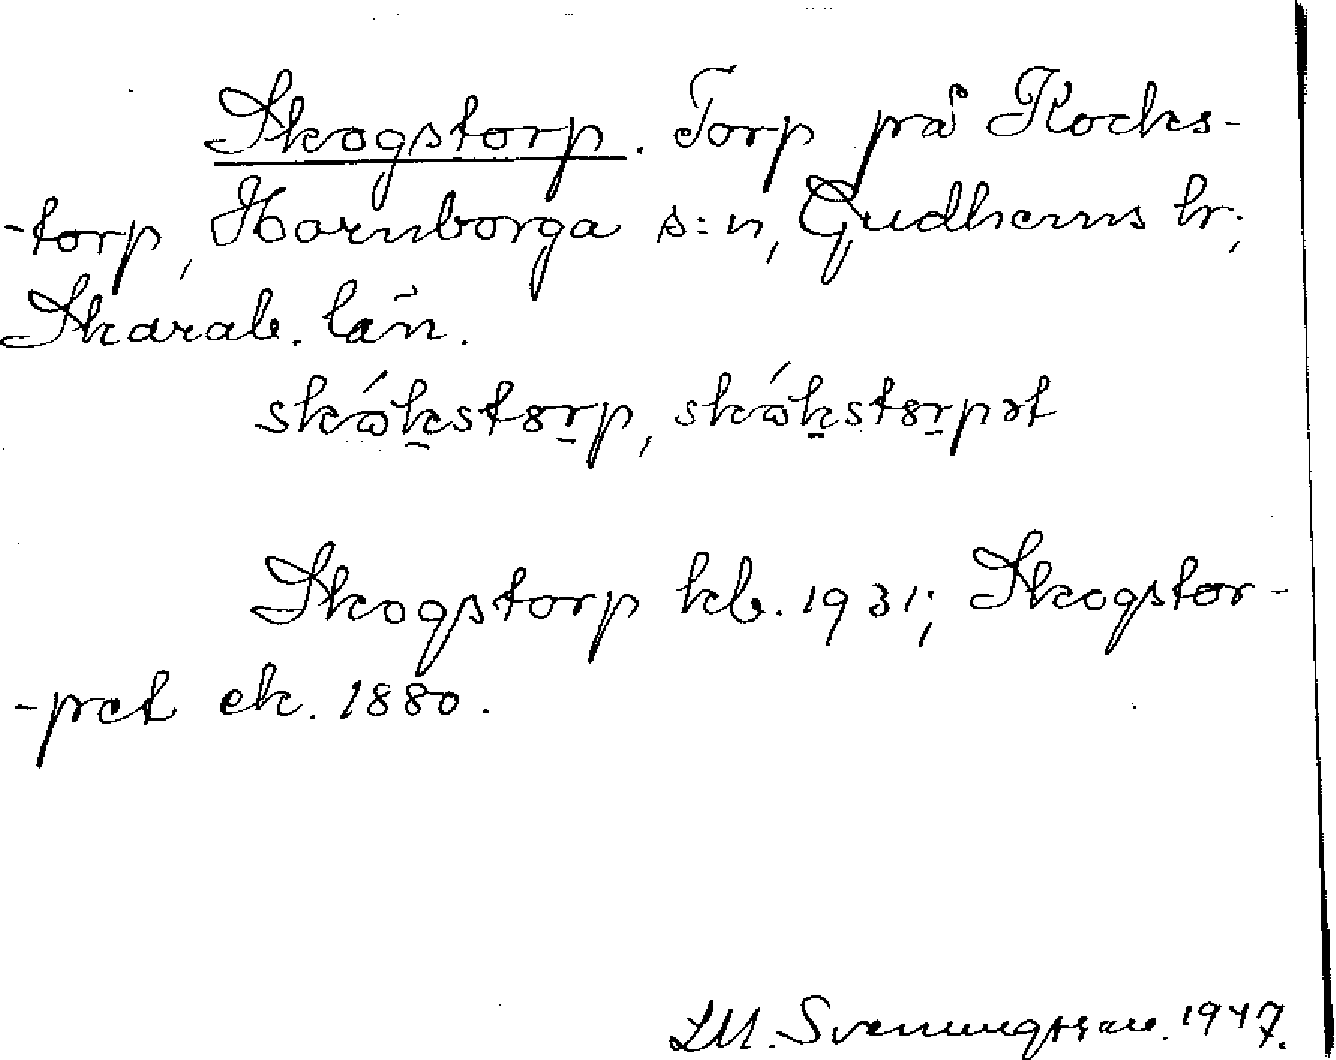 Skogstorp. Torp på Kocks-
-torp, Hornborga s:n, Gudhems hr;
Skarab. län.
skǻk̠stɵr̠p, skǻk̠stɵr̠pət
Skogstorp kb. 1931; Skogstor-
-pet ek. 1880.
LM. Svenungsson. 1947.